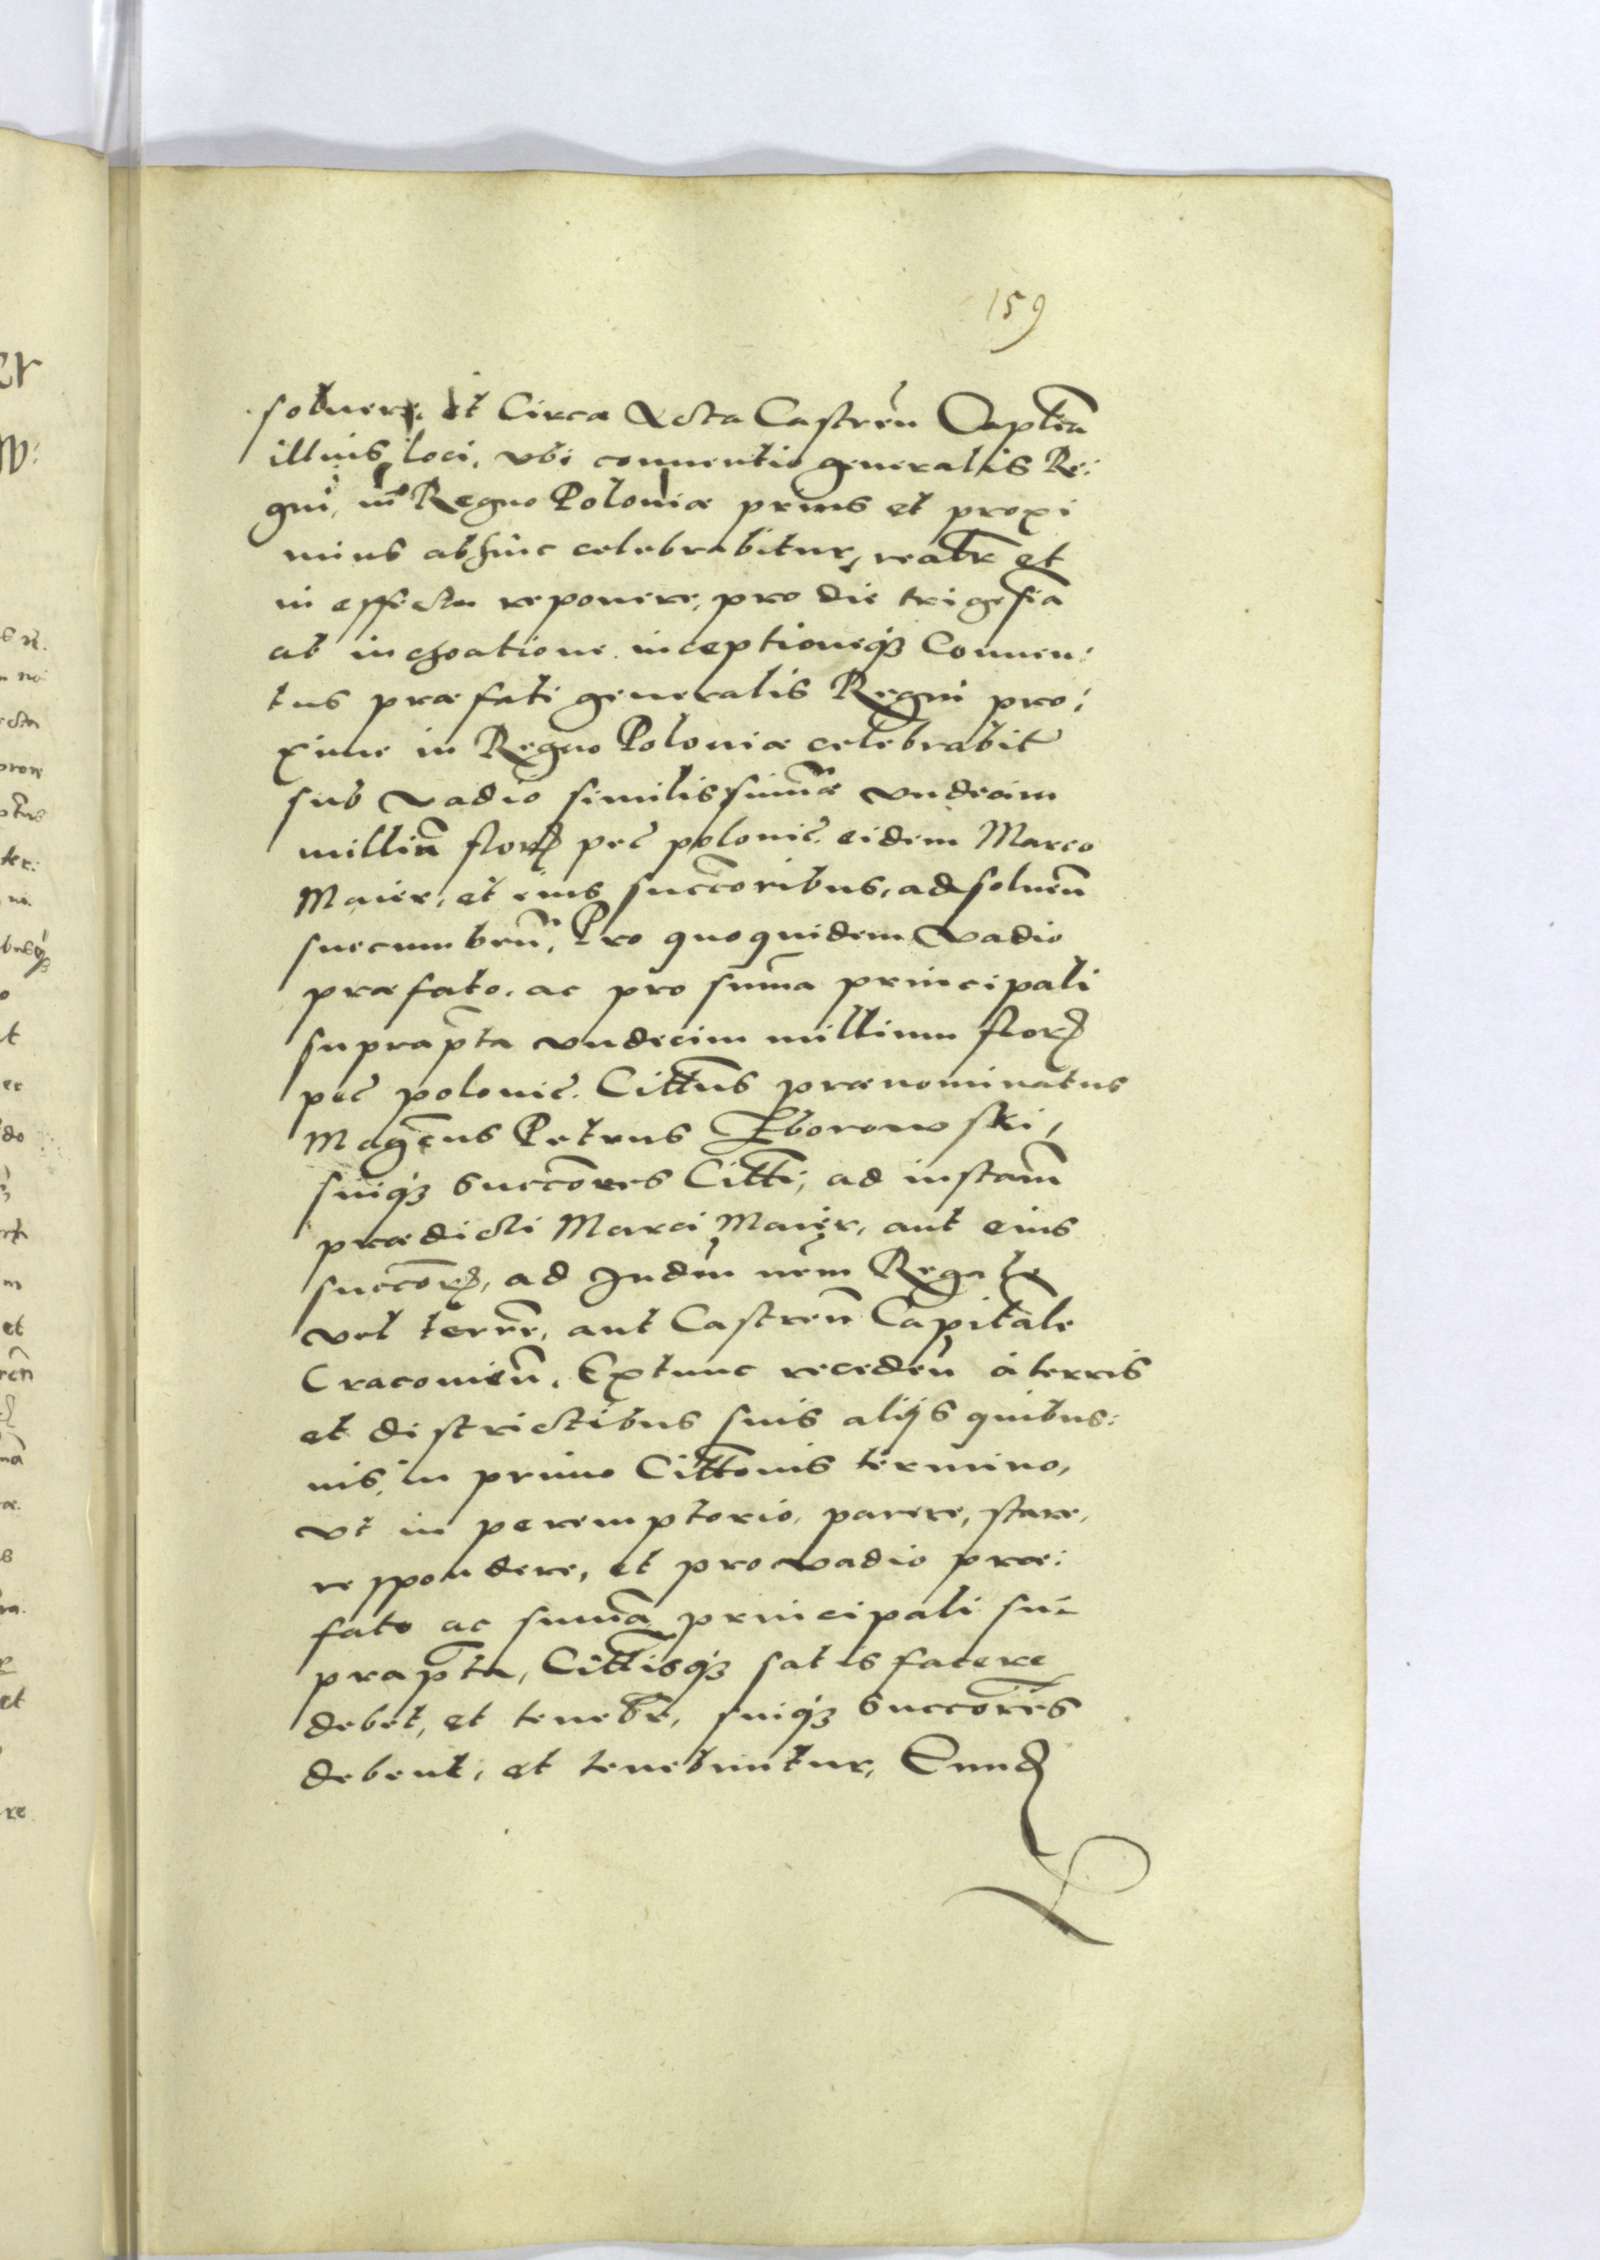 159
soluere, et Circa Acta Castreñ Capteã
illius loci, vbi conuentio generalis Re:
gni, in Regno Poloniæ prius et proxi
mius abhinc celebrabitur, realr et
in effectu reponere, pro die trigesiã
ab inchoatione inceptioneq3 Conuen:
tus præfati generalis Regni pro:
xime in Regno Poloniæ celebrabit
sub vadio similis sum̃æ vndecim
milliũ flor pec polonic. eidem Marco
Maier, et eius succ̃oribus, ad soluen̄
succumben̄, Pro quoquidem vadio
præfato, ac pro sum̃a principali
suprap̃ta vndecim millium flor
pec polonic. Citt̃us prænominatus
Mag̃cus Petrus Zborowski,
suiq3 succ̃ores Citt̃i, ad instañ
prædicti Marci Maier, aut eius
succ̃or, ad Judm̃ nr̃m Regale
vel terr̃e, aut Castren̄ Capit̃ale
Cracouien̄. Extunc receden̄ à terris
et districtibus suis alijs quibus:
uis, in primo Citt̃onis termino,
vt in peremptorio, parere, stare,
respondere, et pro vadio præ:
fato ac sum̃a principali su:
prap̃ta, Citt̃isq3 satisfacere
debet, et tenebr̃, suiq3 succ̃ores
debent, et tenebuntur,